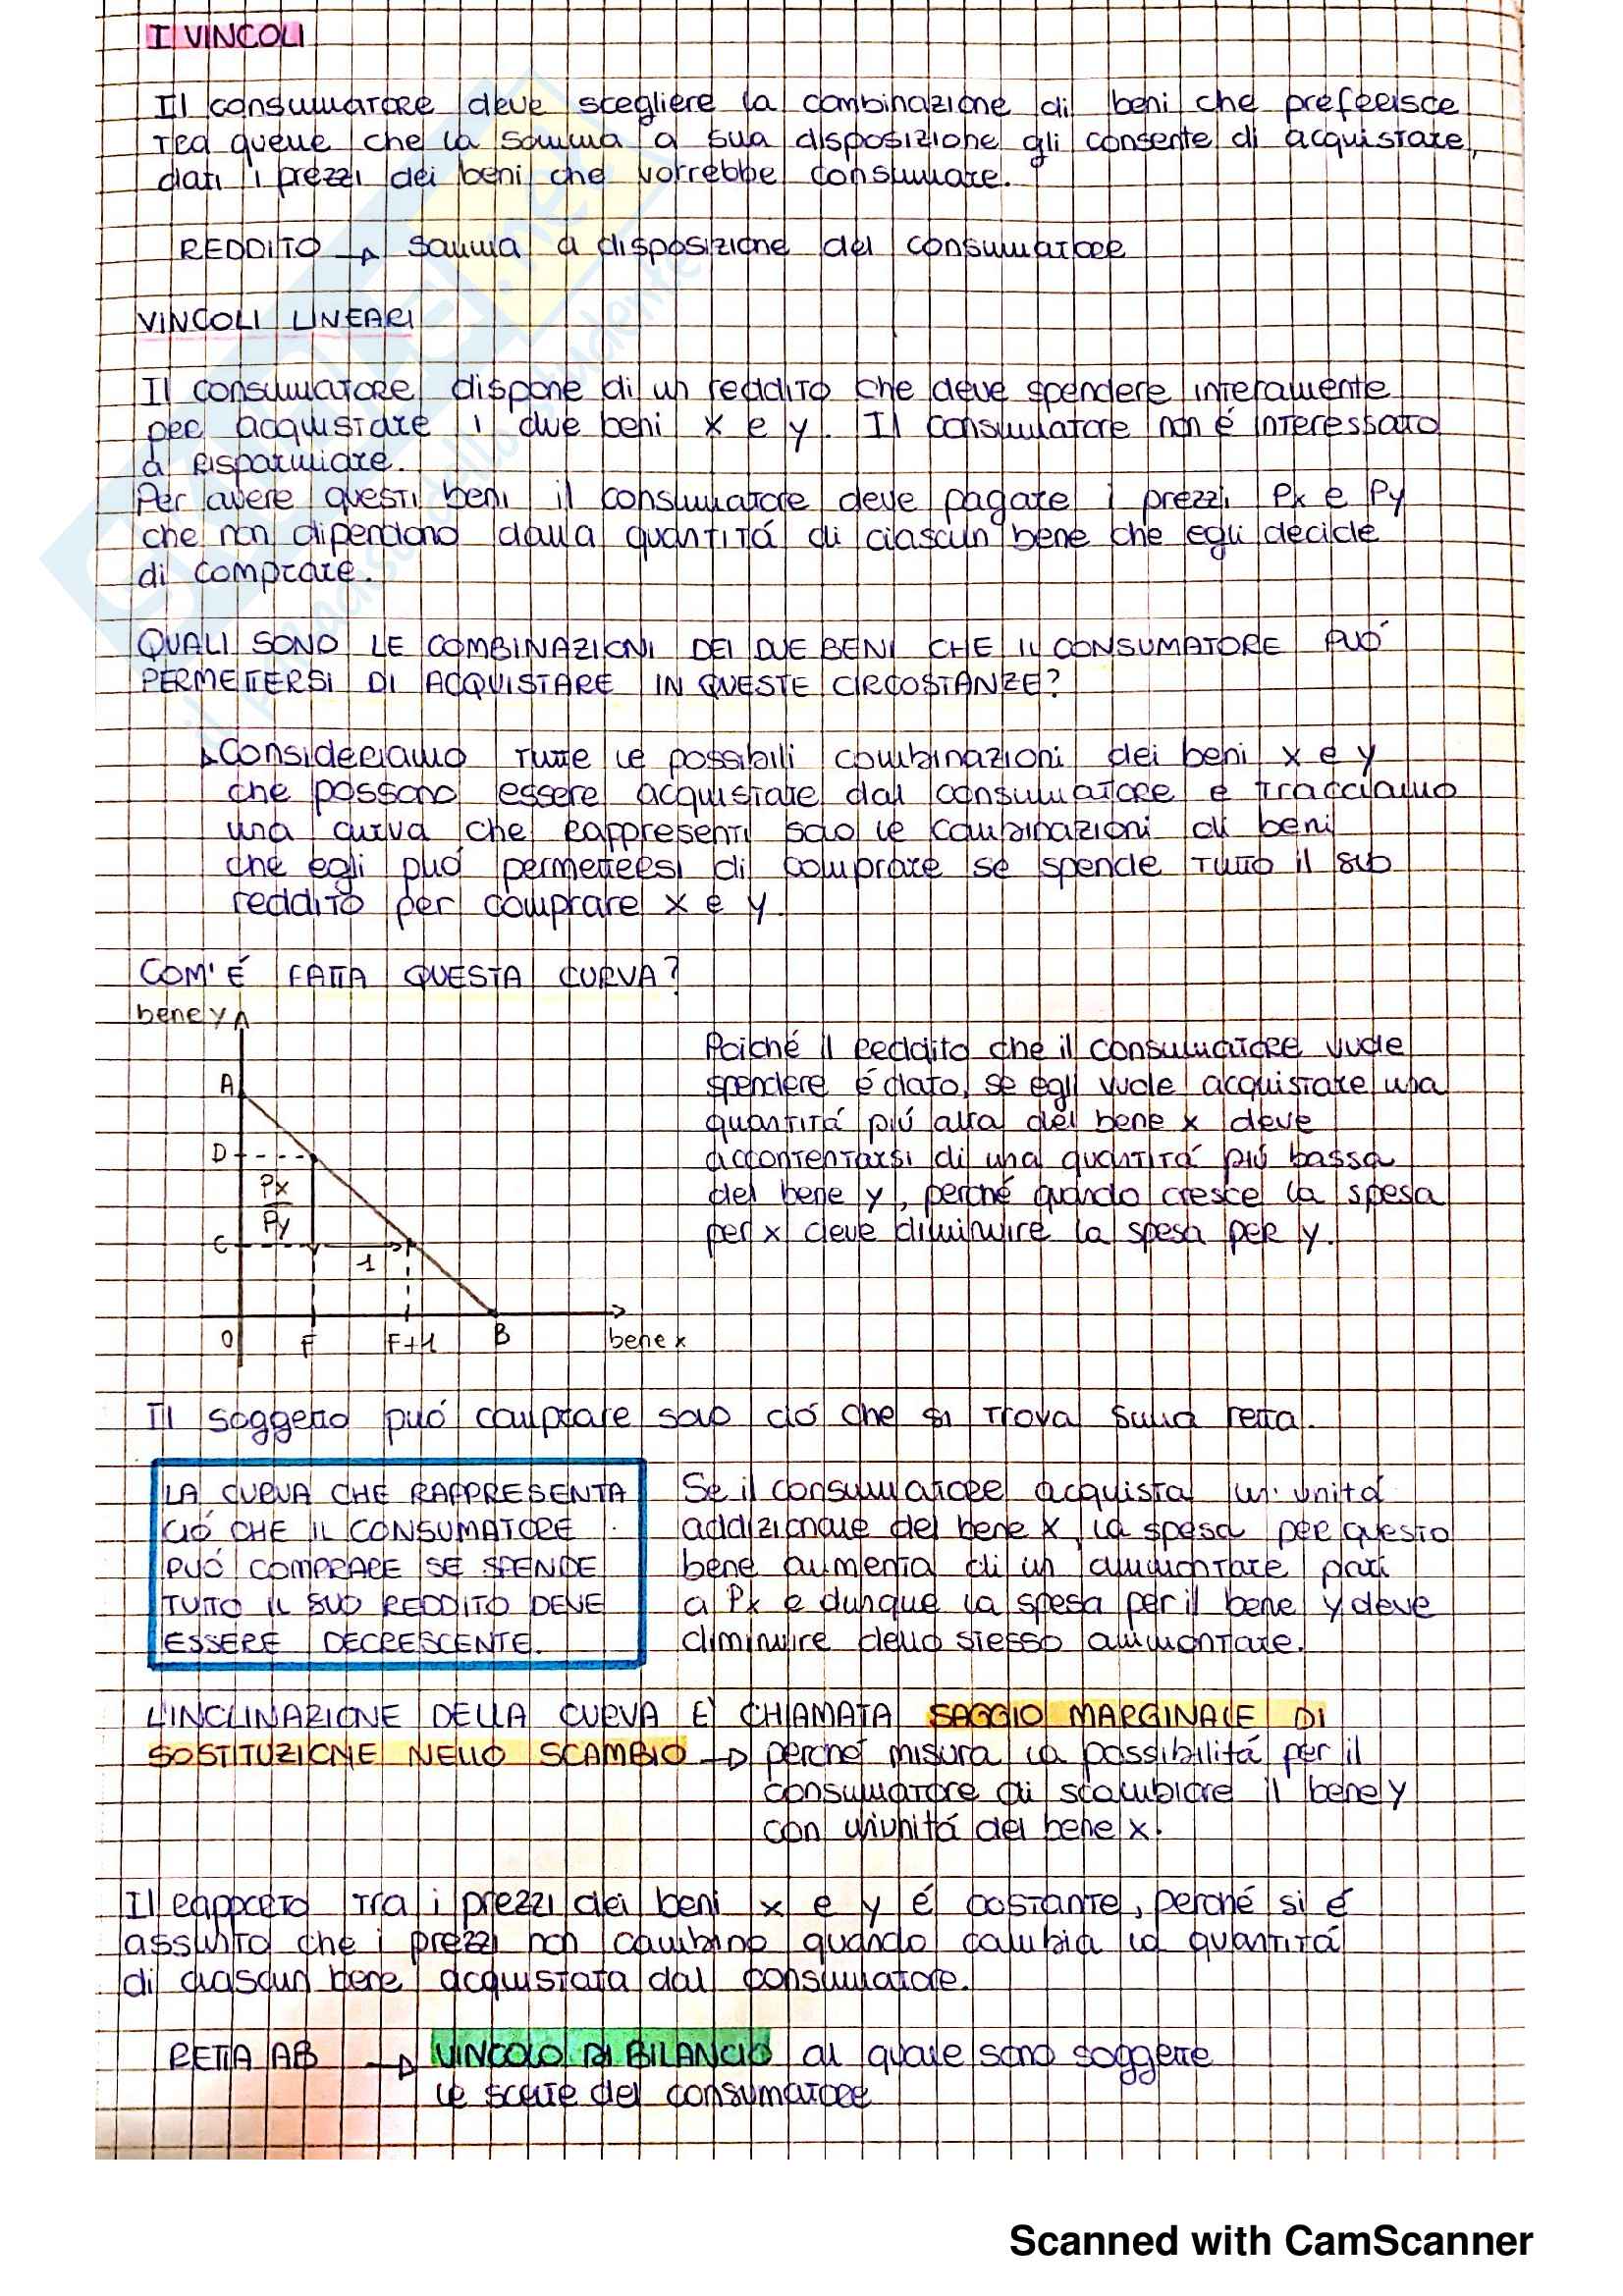 I VINCOLI
Il consumatore deve scegliere la combinazione di beni che preferisce
tra quelle che la somma a sua disposizione gli consente di acquistare,
dati i prezzi dei beni che vorrebbe consumare.
REDDITO → somma a disposizione del consumatore
VINCOLI LINEARI
Il consumatore dispone di un reddito che deve spendere interamente
per acquistare i due beni x e y. Il consumatore non é interessato
a risparmiare.
Per avere questi beni il consumatore deve pagare i prezzi Px e Py
che non dipendono dalla quantitá di ciascun bene che egli decide
di comprare.
QUALI SONO LE COMBINAZIONI DEI DUE BENI CHE IL CONSUMATORE PUÓ
PERMETTERSI DI ACQUISTARE IN QUESTE CIRCOSTANZE?
Consideriamo tutte le possibili combinazioni dei beni x e y
che possono essere acquistate dal consumatore e tracciamo
una curva che rappresenti solo le combinazioni di beni
che egli puó permettersi di comprare se spende tutto il suo
reddito per comprare x e y
COM'É FATTA QUESTA CURVA?
bene y
A
D
Px
Py
C
1
0 F F+1 B bene x
Poiché il reddito che il consumatore vuole
spendere é dato, se egli vuole acquistare una
quantitá piú alta del bene x deve
accontentarsi di una quantitá piú bassa
del bene y, perché quando cresce la spesa
per x deve diminuire la spesa per y.
Il soggetto puó comprare solo ció che si trova sulla retta.
LA CURVA CHE RAPPRESENTA
CIÓ CHE IL CONSUMATORE
PUÓ COMPRARE SE SPENDE
TUTTO IL SUO REDDITO DEVE
ESSERE DECRESCENTE.
Se il consumatore acquista un'unitá
addizionale del bene x, la spesa per questo
bene aumenta di un ammontare pari
a Px e dunque la spesa per il bene y deve
diminuire dello stesso ammontare.
L'INCLINAZIONE DELLA CURVA E' CHIAMATA SAGGIO MARGINALE DI
SOSTITUZIONE NELLO SCAMBIO → perché misura la possibilitá per il
consumatore di scambiare il bene y
con un'unitá del bene x.
Il rapporto tra i prezzi dei beni x e y é costante, perché si é
assunto che i prezzi non cambino quando cambia la quantitá
di ciascun bene acquistata dal consumatore.
RETTA AB → VINCOLO DI BILANCIO al quale sono soggette
le scelte del consumatore
Scanned with CamScanner